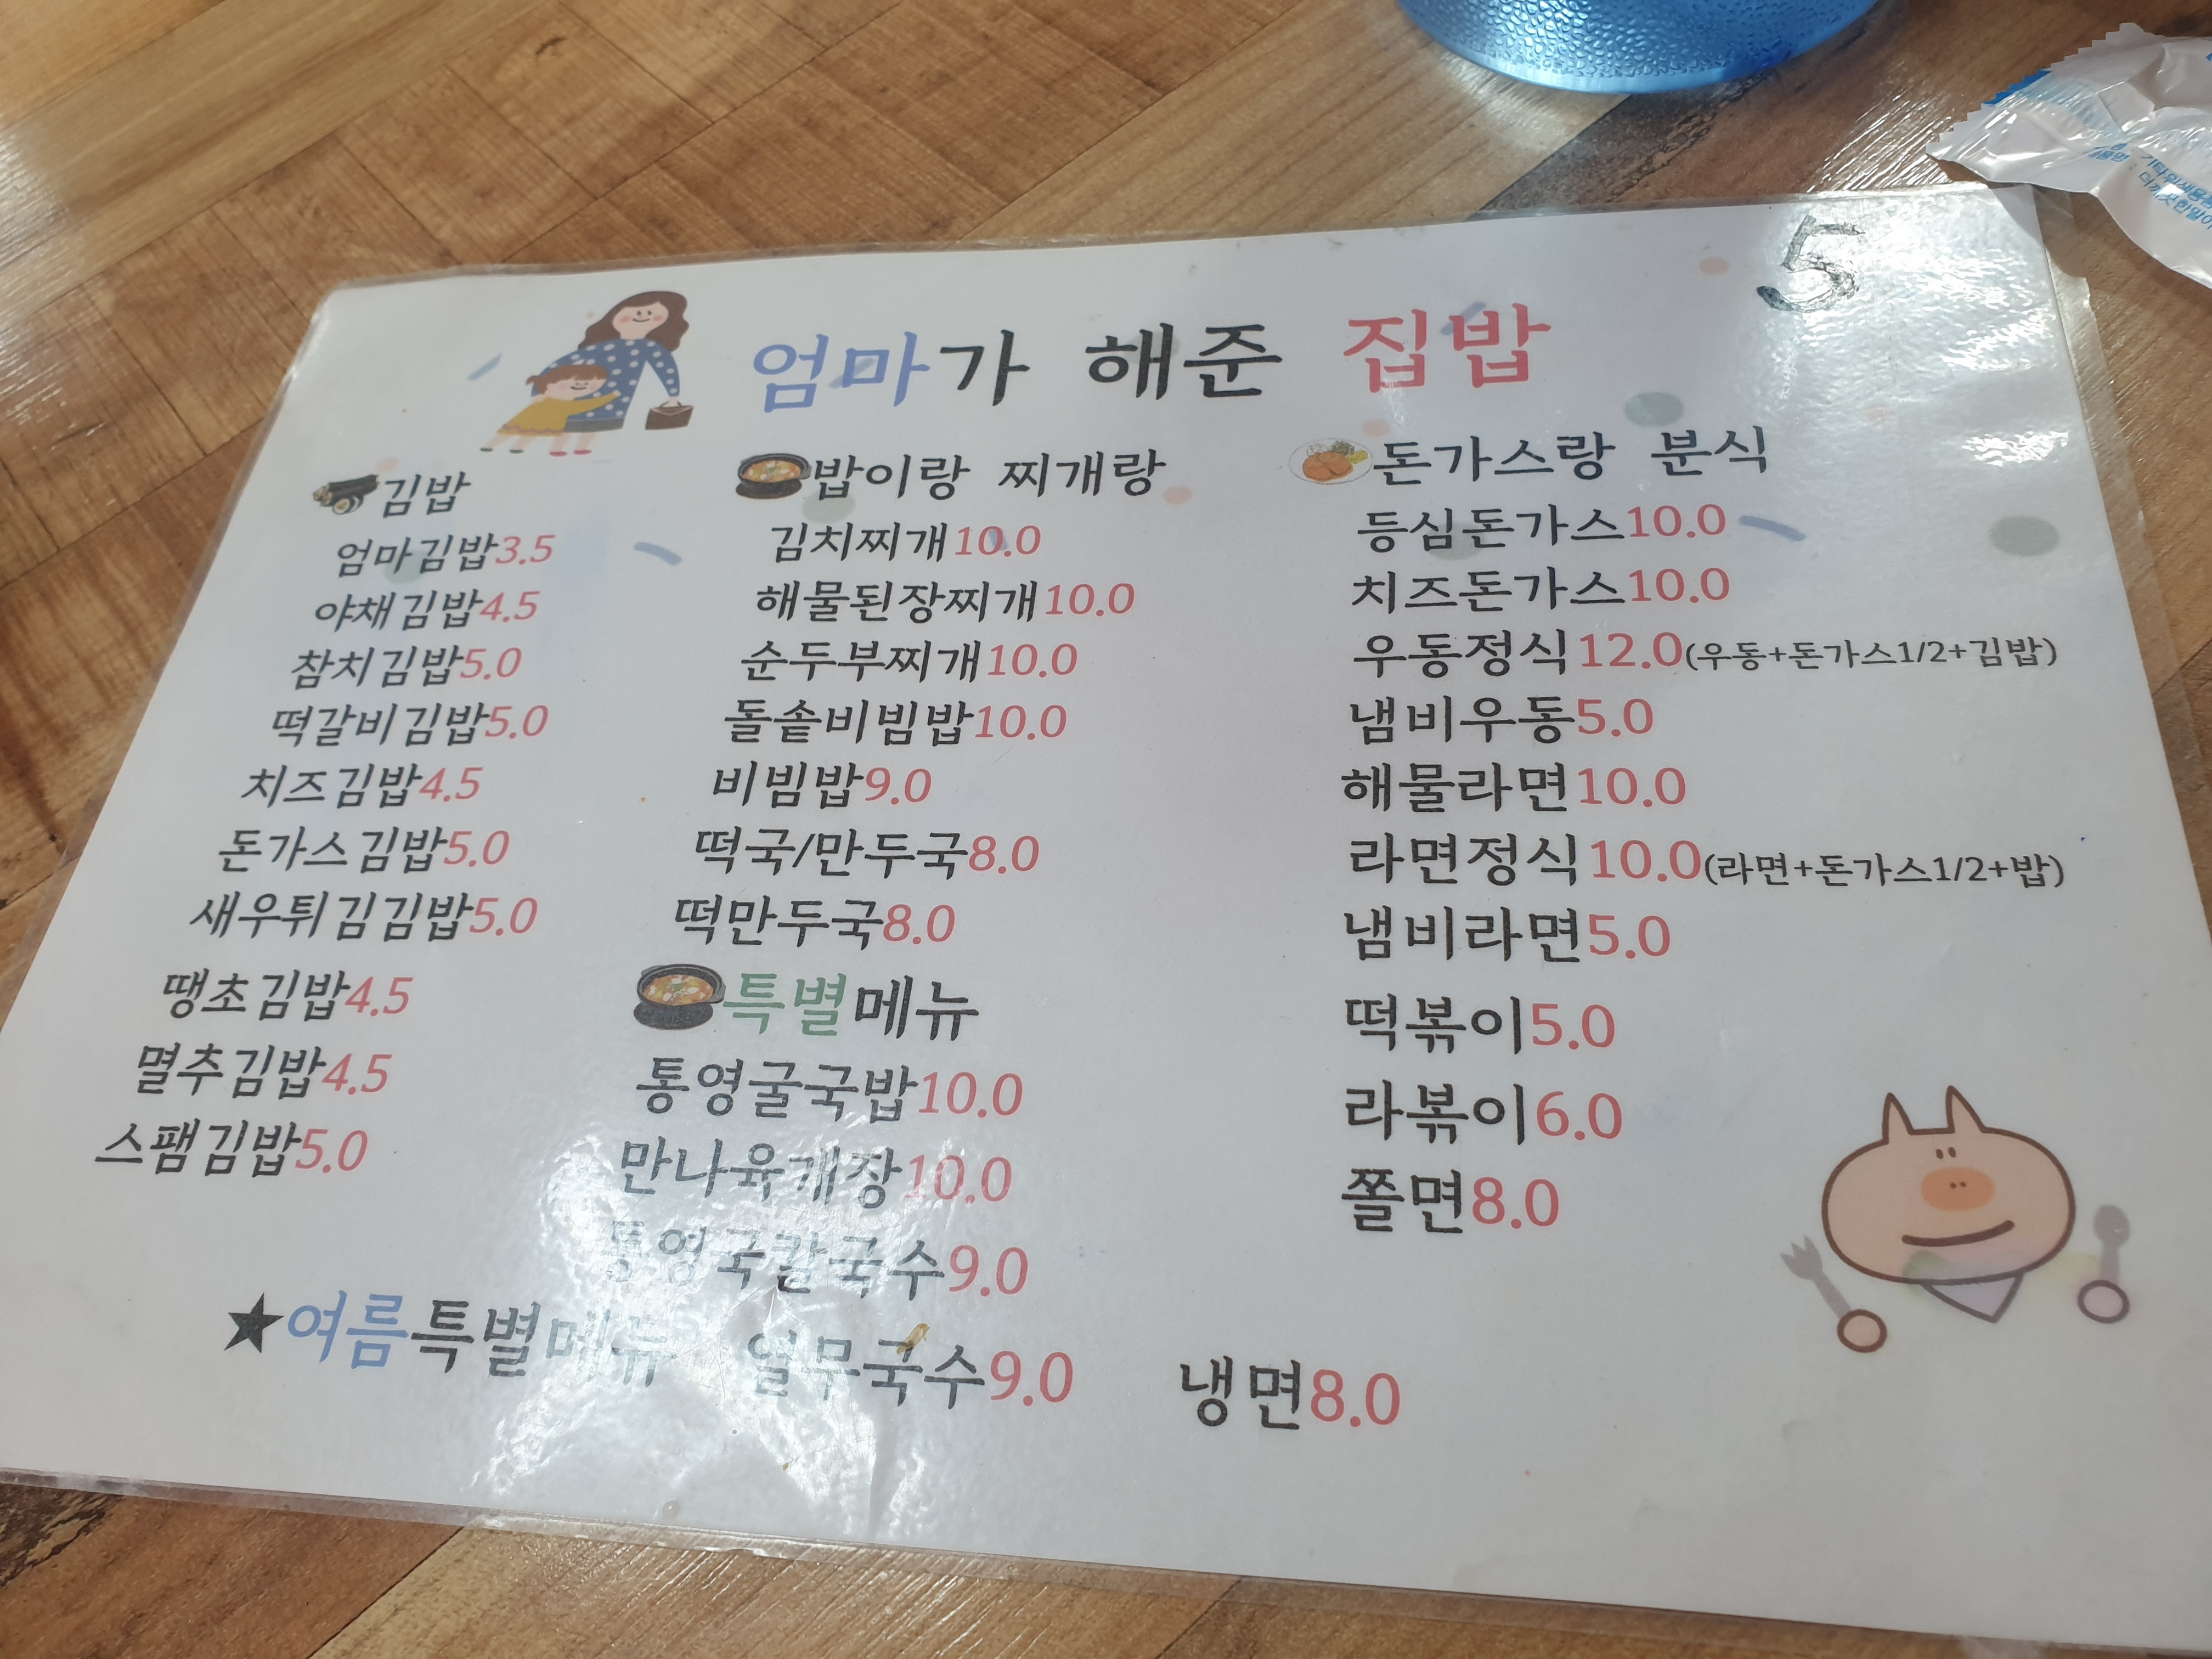 5
엄마가 해준 집밥
김밥
엄마김밥3.5
야채김밥4.5
참치김밥5.0
떡갈비김밥5.0
치즈김밥4.5
돈가스김밥5.0
새우튀김김밥5.0
땡초김밥4.5
멸추김밥4.5
스팸김밥5.0
밥이랑 찌개랑
김치찌개10.0
해물된장찌개10.0
순두부찌개10.0
돌솥비빔밥10.0
비빔밥9.0
떡국/만두국8.0
떡만두국8.0
특별메뉴
통영굴국밥10.0
만나육개장10.0
통영국칼국수9.0
돈가스랑 분식
등심돈가스10.0
치즈돈가스10.0
우동정식12.0(우동+돈가스1/2+김밥)
냄비우동5.0
해물라면10.0
라면정식10.0(라면+돈가스1/2+밥)
냄비라면5.0
떡볶이5.0
라볶이6.0
쫄면8.0
★여름특별메뉴 열무국수9.0 냉면8.0